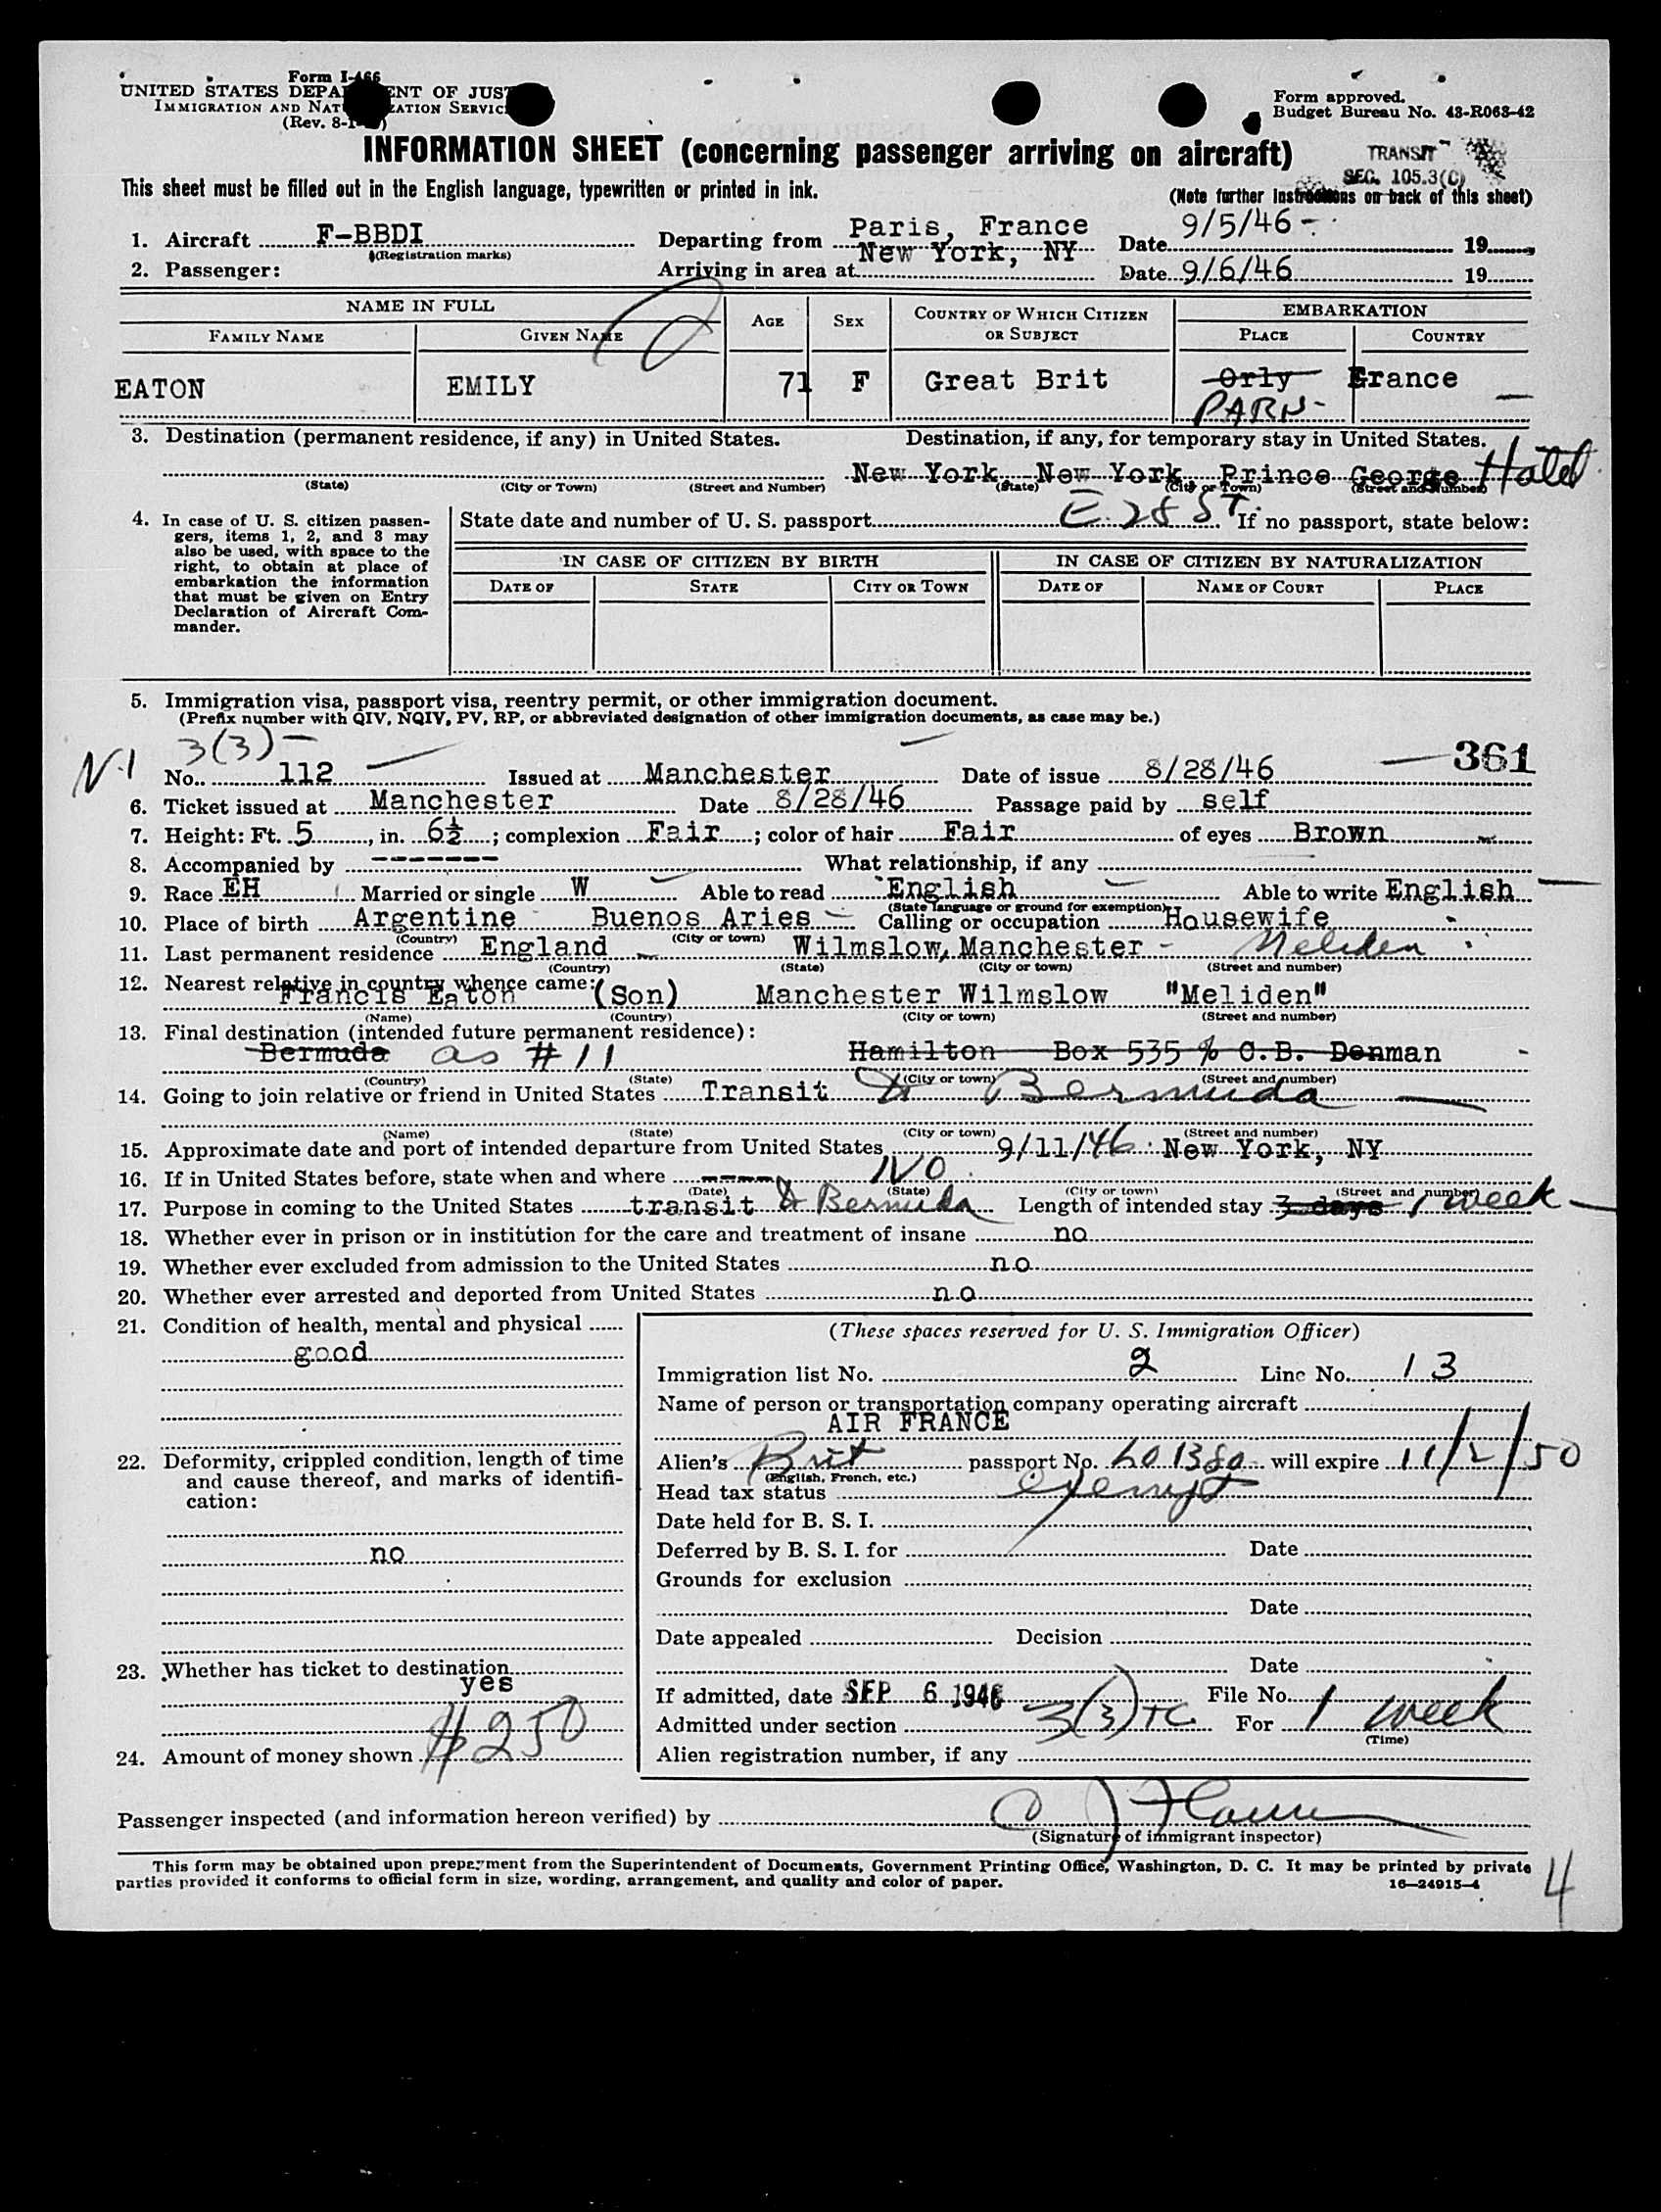 Form I-466
UNITED STATES DEPA ENT OF JUS
IMMIGRATION AND NAT ZATION SERVIC
(Rev. 8-1- )
Form approved.
Budget Bureau No. 43-R063-42
INFORMATION SHEET (concerning passenger arriving on aircraft)
TRANSIT
SEC. 105.3(C)
This sheet must be filled out in the English language, typewritten or printed in ink.
(Note further instructions on back of this sheet)
1. Aircraft F-BBDI Departing from Paris, France Date 9/5/46 - 19
(Registration marks)
2. Passenger: Arriving in area at New York, NY Date 9/6/46 19
NAME IN FULL AGE SEX COUNTRY OF WHICH CITIZEN OR SUBJECT EMBARKATION
FAMILY NAME GIVEN NAME PLACE COUNTRY
EATON EMILY 71 F Great Brit Orly France
PARIS -
3. Destination (permanent residence, if any) in United States. Destination, if any, for temporary stay in United States.
New York, New York, Prince George Hotel
(State) (City or Town) (Street and Number) (State) (City or Town) (Street and Number)
E. 28 ST.
4. In case of U. S. citizen passengers, items 1, 2, and 3 may also be used, with space to the right, to obtain at place of embarkation the information that must be given on Entry Declaration of Aircraft Commander.
State date and number of U. S. passport If no passport, state below:
IN CASE OF CITIZEN BY BIRTH IN CASE OF CITIZEN BY NATURALIZATION
DATE OF STATE CITY OR TOWN DATE OF NAME OF COURT PLACE
5. Immigration visa, passport visa, reentry permit, or other immigration document.
(Prefix number with QIV, NQIV, PV, RP, or abbreviated designation of other immigration documents, as case may be.)
3(3) -
361
No. 112 Issued at Manchester Date of issue 8/28/46
6. Ticket issued at Manchester Date 8/28/46 Passage paid by self
7. Height: Ft. 5, in. 6½; complexion Fair; color of hair Fair of eyes Brown
8. Accompanied by ------- What relationship, if any
9. Race EH Married or single W Able to read English Able to write English
(State language or ground for exemption)
10. Place of birth Argentine Buenos Aries Calling or occupation Housewife
(Country) (City or town)
11. Last permanent residence England Wilmslow, Manchester - Meliden
(Country) (State) (City or town) (Street and number)
12. Nearest relative in country whence came:
Francis Eaton (Son) Manchester Wilmslow "Meliden"
(Name) (Country) (City or town) (Street and number)
13. Final destination (intended future permanent residence):
Bermuda as # 11 Hamilton Box 535 % C.B. Denman -
(Country) (State) (City or town) (Street and number)
14. Going to join relative or friend in United States Transit to Bermuda
(Name) (State) (City or town) (Street and number)
15. Approximate date and port of intended departure from United States 9/11/46 New York, NY
16. If in United States before, state when and where ----- NO
(Date) (State) (City or town) (Street and number)
17. Purpose in coming to the United States transit to Bermuda Length of intended stay 3 days 1 week -
18. Whether ever in prison or in institution for the care and treatment of insane no
19. Whether ever excluded from admission to the United States no
20. Whether ever arrested and deported from United States no
21. Condition of health, mental and physical
good
22. Deformity, crippled condition, length of time and cause thereof, and marks of identification:
no
23. Whether has ticket to destination
yes
24. Amount of money shown $250
(These spaces reserved for U. S. Immigration Officer)
Immigration list No. 2 Line No. 13
Name of person or transportation company operating aircraft
AIR FRANCE
Alien's Brit passport No. will expire 11/2/50
(English, French, etc.)
Head tax status exempt
Date held for B. S. I.
Deferred by B. S. I. for Date
Grounds for exclusion
Date
Date appealed Decision
Date
If admitted, date SEP 6 1946 File No.
Admitted under section 3(3) TC For 1 week
(Time)
Alien registration number, if any
Passenger inspected (and information hereon verified) by
(Signature of immigrant inspector)
This form may be obtained upon prepayment from the Superintendent of Documents, Government Printing Office, Washington, D. C. It may be printed by private
parties provided it conforms to official form in size, wording, arrangement, and quality and color of paper. 16—24915-4
4